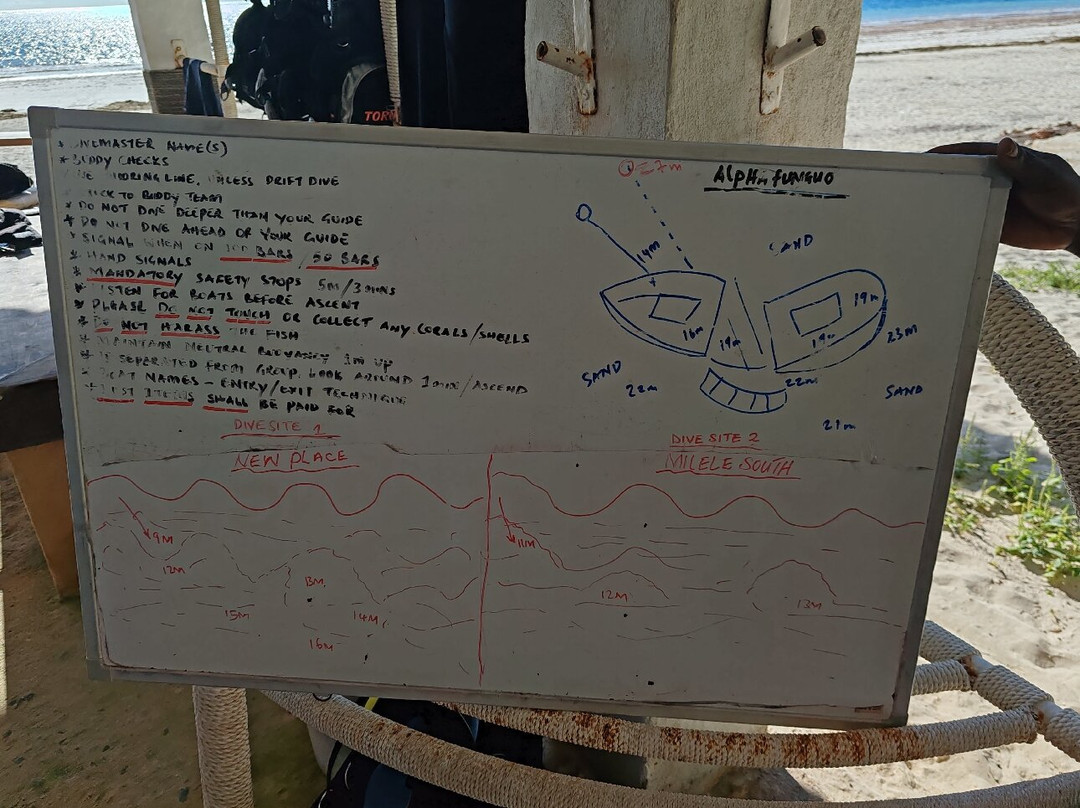 TOR
DIVEMASTER NAME(S)
* BUDDY CHECKS
MOORING LINE, UNLESS DRIFT DIVE
STICK TO BUDDY TEAM
* DO NOT DIVE DEEPER THAN YOUR GUIDE
* DO NOT DIVE AHEAD OF YOUR GUIDE
* SIGNAL WHEN ON 100 BARS / 50 BARS
* HAND SIGNALS
* MANDATORY SAFETY STOPS 5M/3MINS
* LISTEN FOR BOATS BEFORE ASCENT
* PLEASE DO NOT TOUCH OR COLLECT ANY CORALS/SHELLS
* DO NOT HARASS THE FISH
* MAINTAIN NEUTRAL BUOYANCY 1M UP
* IF SEPARATED FROM GROUP, LOOK AROUND 1MIN/ASCEND
* BOAT NAMES - ENTRY/EXIT TECHNIQUE
* LOST ITEMS SHALL BE PAID FOR
= 7m
ALPHA FUNGUO
SAND
14m
16m
19m
19m
19m
23m
SAND
22m
22m
SAND
21m
DIVE SITE 1
NEW PLACE
9M
12M
13M
15M
14M
16M
DIVE SITE 2
MILELE SOUTH
11M
12M
13M